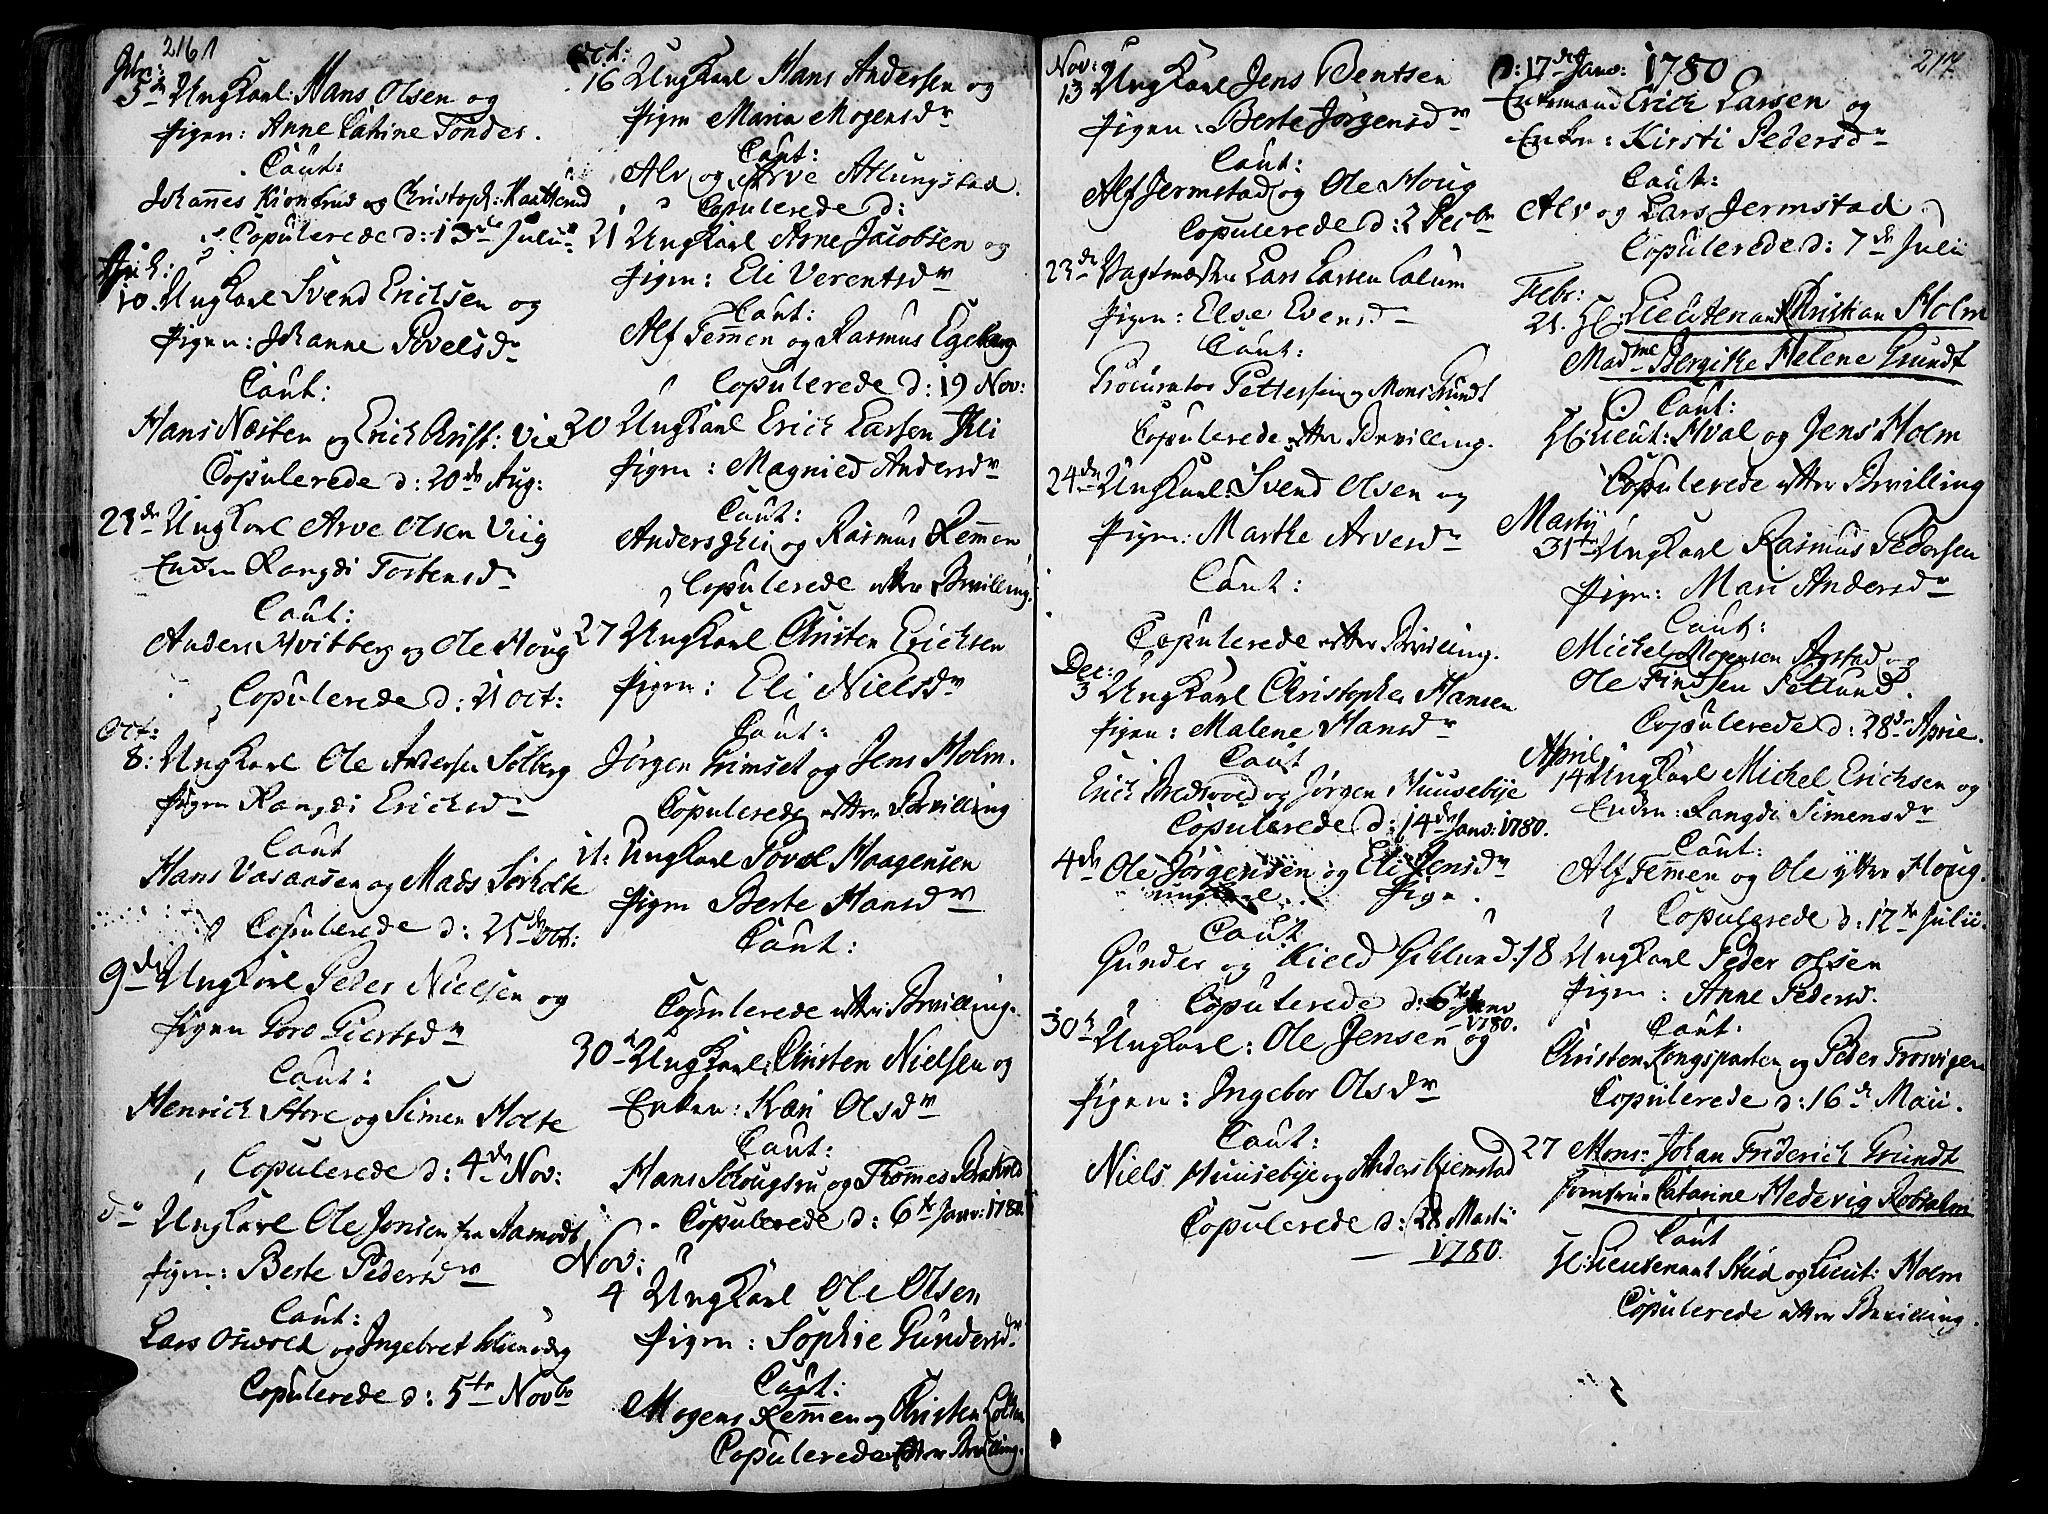 216
5 d UngKarl: Hans Olsen og
Pigen: Anne Cathrine Tonder.
Caut:
Johannes Kionerud og Christoph:
Copulerede d: 13de Julii
10. UngKarl Svend Erichsen og
Pigen: Johanne Povelsdr
Caut:
Hans Næsten og Erich Christ: Vie
Copulerede d: 20de Aug:
23de UngKarl Arve Olsen Viig
Enken Rangdi Torstensdr
Caut:
Anders Hvitberg og Ole Houg
Copulerede d: 21 Oct:
Oct:
8: UngKarl Ole Andersen Solberg
Pigen Rangdi Erichsdr
Caut
Hans Vasaasen og Mads Sørholte
Copulerede d: 25de Oct:
9de UngKarl Peder Nielsen og
Pigen Goro Giertsdr
Caut:
Henrich Store og Simen Holte
Copulerede d: 4de Nov:
do UngKarl Ole Jonsen fra Aamodt
Pigen: Berte Pedersdr
Caut:
Lars Oswold og Ingebret
Copulerede d: 5te Novb
Oct:
16 UngKarl Hans Andersen og
Pigen Maria Mogensdr
Caut:
Alv og Arve Atlungstad.
Copulerede d:
21 UngKarl Arne Jacobsen og
Pigen: Eli Verentsdr
Caut:
Alf Temmen og Rasmus Egeberg
Copulerede d: 19 Nov:
20 UngKarl Erich Larsen Jhli
Pigen: Magnied Andersdr
Caut:
Anders Jhli og Rasmus Remmen
Copulerede efter Bevilling.
27 UngKarl Christen Erichsen
Pigen: Eli Nielsdr
Caut:
Jørgen Grimset og Jens Holm.
Copulerede efter Bevilling
21: UngKarl Povel Haagensen
Pigen Berte Hansdr
Caut:
Copulerede efter Bevilling.
30 d UngKarl: Christen Nielsen og
Enken: Kari Olsdr
Caut:
Hans Schougsru og Thomes
Copulerede d: 6te Janv: 1780
Nov:
4 UngKarl Ole Olsen
Pigen: Sophie Gundersdr
Caut:
Mogens Remmen og Christen
Copulerede efter Bevilling.
Nov:
13 UngKarl Jens Bentsen
Pigen: Berte Jørgensdr
Caut:
Alf Jermstad og Ole Houg
Copulerede d: 2 Decbr
23de Vagtmester Lars Larsen Calum
Pigen: Else Evensd
Caut:
Procurator Pettersen og Mons Grundt
Copulerede efter Bevilling.
24de UngKarl: Svend Olsen og
Pigen: Marthe Arvesdr
Caut:
Copulerede efter Bevilling.
Dec:
3 UngKarl Christopher Hansen
Pigen: Malene Hansdr
Caut
Erich Bredsvold og Jørgen Huusebye
Copulerede d: 14de Janv: 1780.
4de Ole Jørgensen og Eli Jensdr
ungKarl. Pige.
Caut
Gunder og Kield
Copulerede d: 6te Janv
1780.
30 d UngKarl: Ole Jensen og
Pigen: Ingebor Olsdr
Caut:
Niels Huusebye og Anders Hiemstad
Copulerede d: 28 Martii
1780.
217
d: 17de Janv: 1780
Enkemand Erich Larsen og
Enken: Kirsti Pedersdr
Caut:
Alv og Lars Jermstad
Copulerede d: 7de Julii
Febr:
21. Hr: Lieutenant Christian Holm
Madme Bergithe Helene Grundt
Caut:
Hr Lieut: Hval og Jens Holm
Copulerede efter Bevilling
Martij
31te UngKarl Rasmus Pedersen
Pigen: Mari Andersdr
Caut:
Michel Mogensen Aastad og
Ole Findsen Setlund.
Copulerede d: 28de April.
April
14 UngKarl Michel Erichsen og
Enken: Rangdi Simensdr
Caut:
Alf Temmen og Ole ytter Houg.
Copulerede d: 12te Julii.
18 UngKarl Peder Olsen
Pigen: Anne Pedersd.
Caut.
Christen Kongsparten og Peder Trosvigen
Copulerede d: 16de Maii.
27 Monsr Johan Friderich Grundt
Jomfrue Catarine Hedevig
Caut
Hr: Lieutenant Stud og Lieut: Holm
Copulerede efter Bevilling.